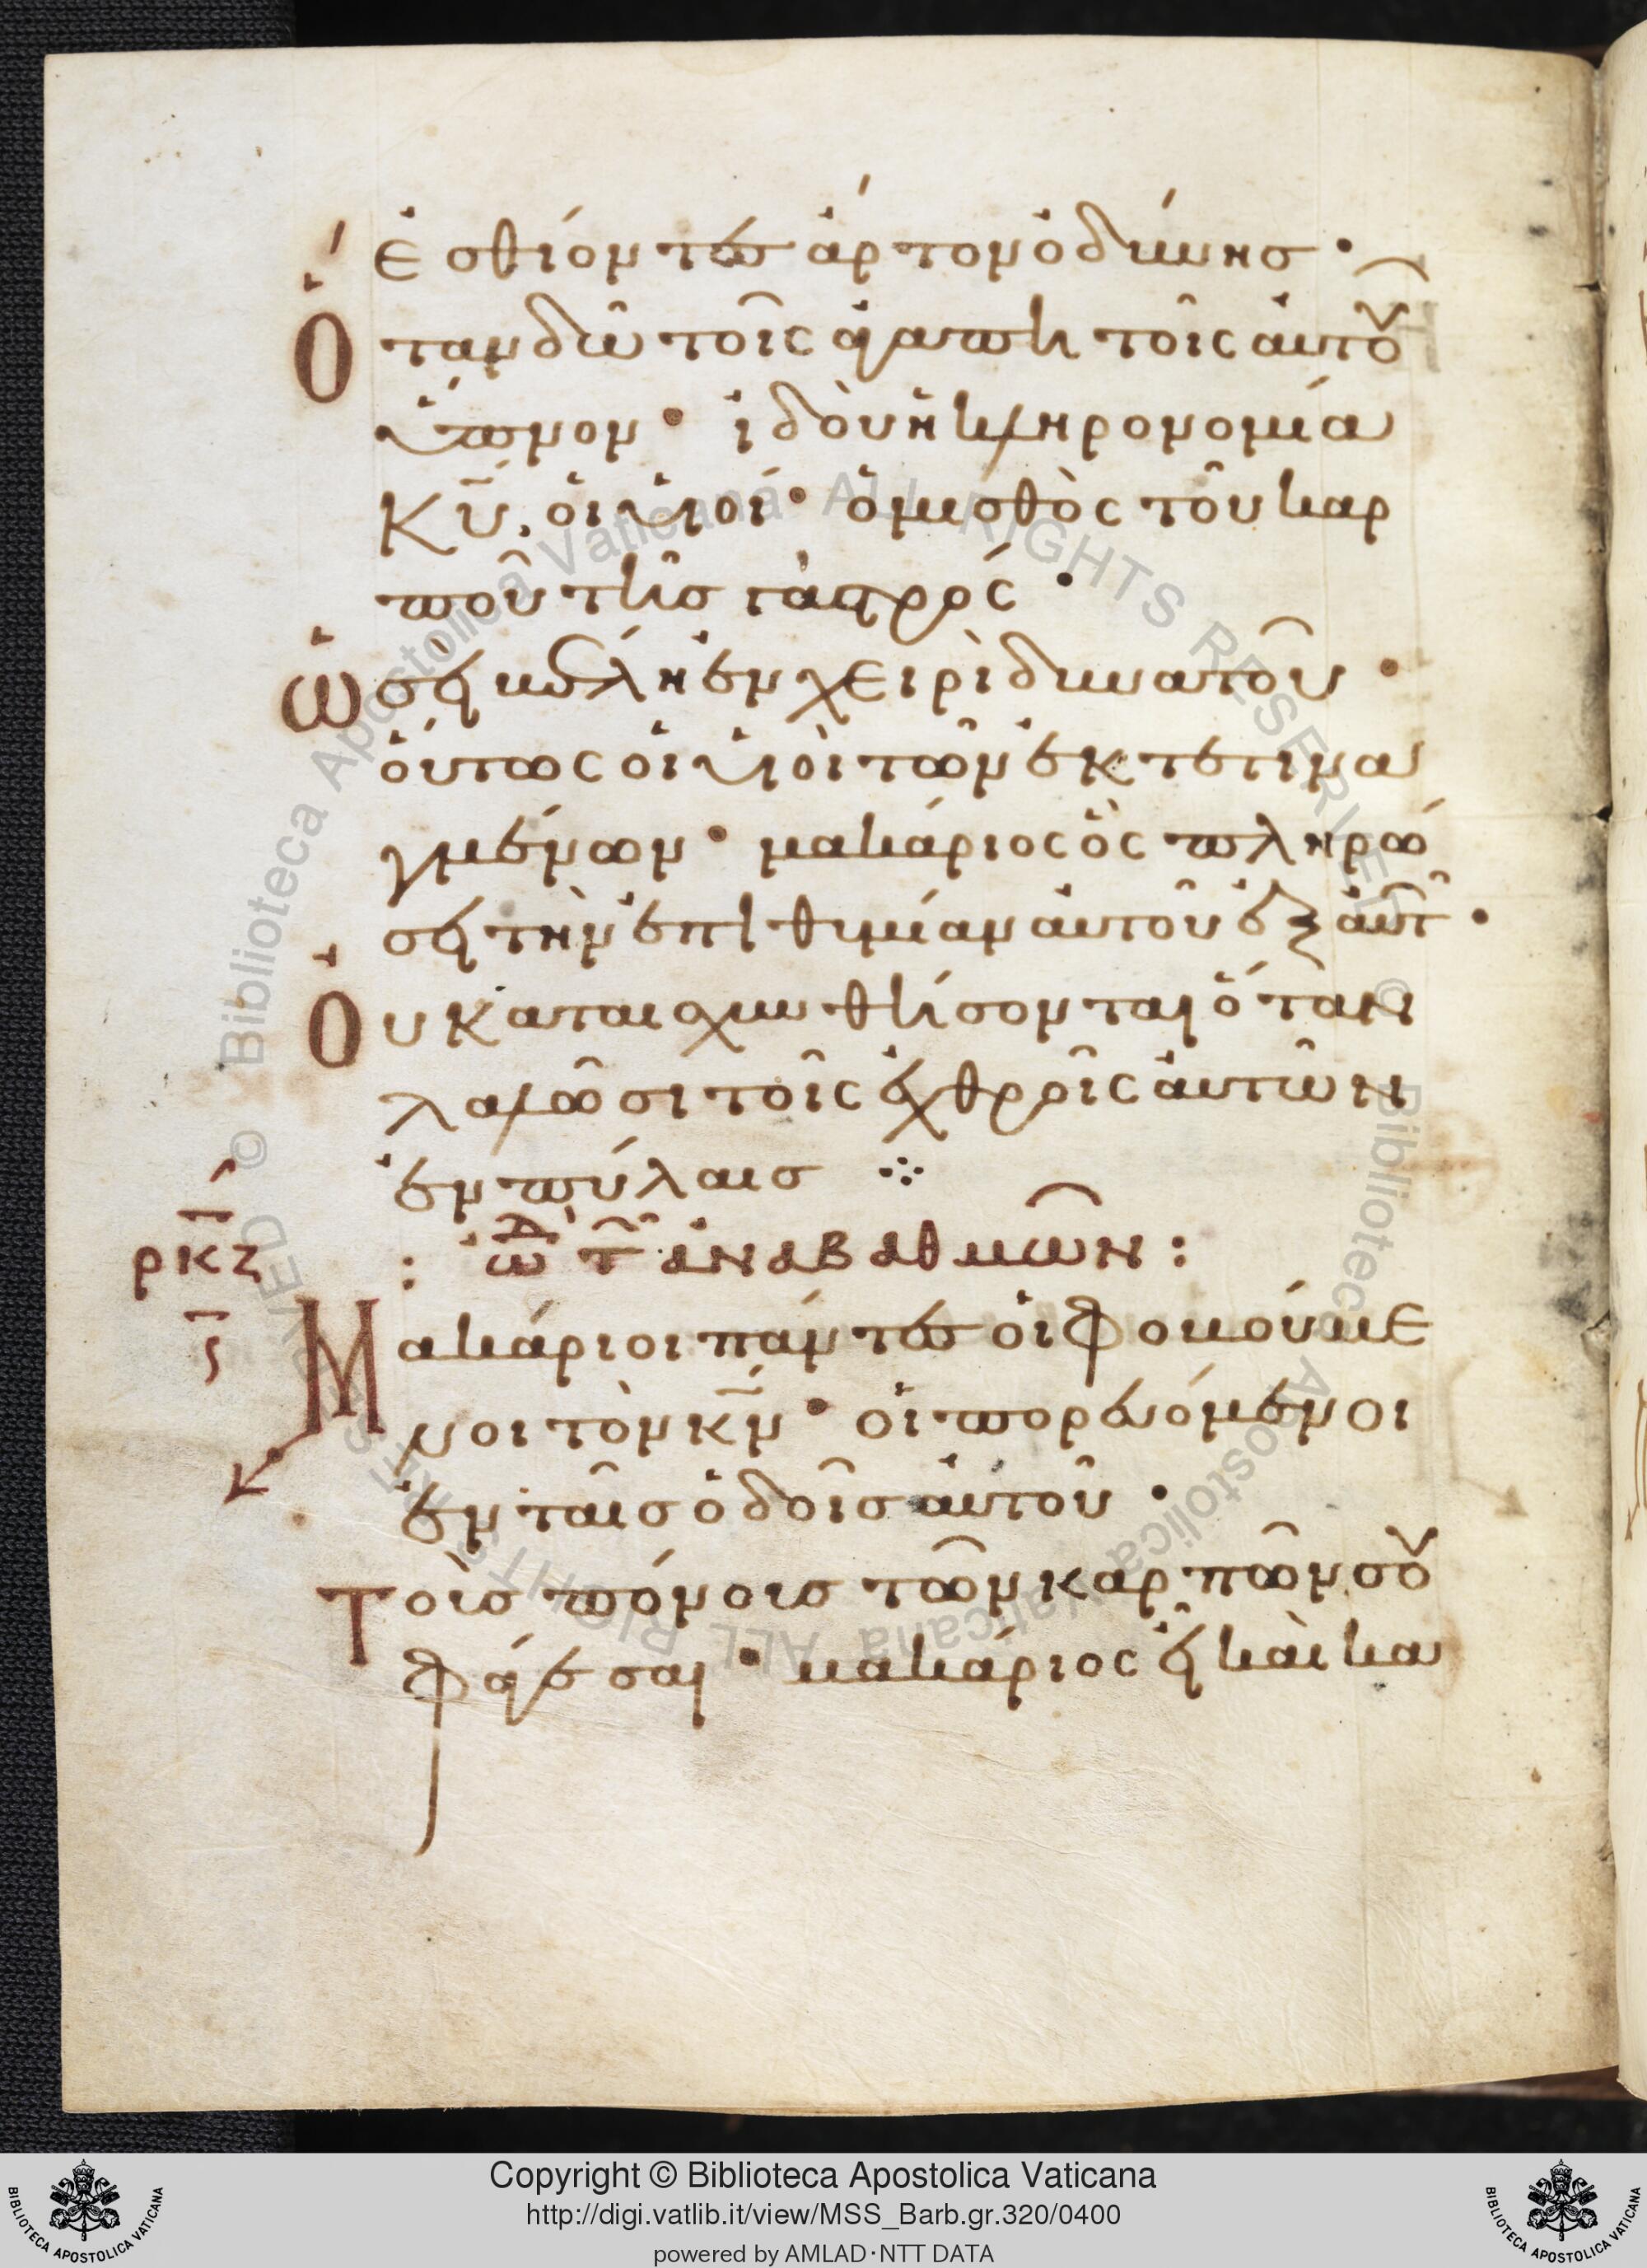 ἐσθίοντες ἄρτον ὀδύνης·
Ὅταν δῶ τοῖς ἀγαπητοῖς αὐτοῦ
ὕπνον· ἰδοὺ ἡ κληρονομία
κ̅υ̅, οἱ υἱοί· ὁ μισθὸς τοῦ καρ
ποῦ τῆς γαστρός·
Ὡσεὶ βέλη ἐν χειρὶ δυνατοῦ·
οὕτως οἱ υἱοὶ τῶν ἐκτετινα
γμένων· μακάριος ὃς πληρώ
σει τὴν ἐπιθυμίαν αὐτοῦ ἐξ αὐτ·
Οὐ καταισχυνθήσονται ὅταν
λαλῶσι τοῖς ἐχθροῖς αὐτῶν
ἐν πύλαις ⁘
ρκζ : ὠδ τ ἀναβαθμῶν :
ς Μακάριοι πάντες οἱ φοβούμε
νοι τὸν κ̅ν̅· οἱ πορευόμενοι
ἐν ταῖς ὁδοῖς αὐτοῦ·
Τοὺς πόνους τῶν καρπῶν σου
φάγεσαι· μακάριος εἶ καὶ κα
© Biblioteca Apostolica Vaticana ALL RIGHTS RESERVED © Biblioteca Apostolica Vaticana ALL RIGHTS RESERVED
Copyright © Biblioteca Apostolica Vaticana
http://digi.vatlib.it/view/MSS_Barb.gr.320/0400
powered by AMLAD·NTT DATA
BIBLIOTECA APOSTOLICA VATICANA
BIBLIOTECA APOSTOLICA VATICANA